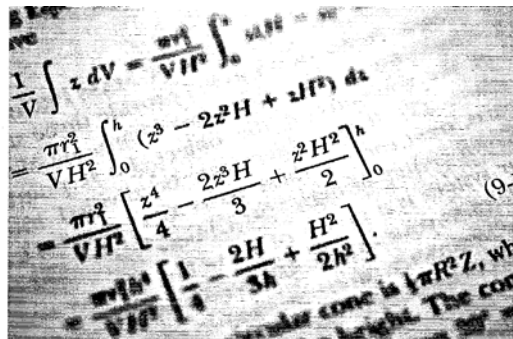 ve
\frac{1}{V} \int z \, dV = \frac{\pi r_1^2}{VH^2} \int_0^h
= \frac{\pi r_1^2}{VH^2} \int_0^h (z^3 - 2z^2H + zH^2) \, dz
= \frac{\pi r_1^2}{VH^2} \left[ \frac{z^4}{4} - \frac{2z^3H}{3} + \frac{z^2H^2}{2} \right]_0^h
(9-
= \frac{\pi r_1^2 h^4}{VH^2} \left[ \frac{1}{4} - \frac{2H}{3h} + \frac{H^2}{2h^2} \right].
cone is \frac{1}{3}\pi R^2 Z, wh
height. The con